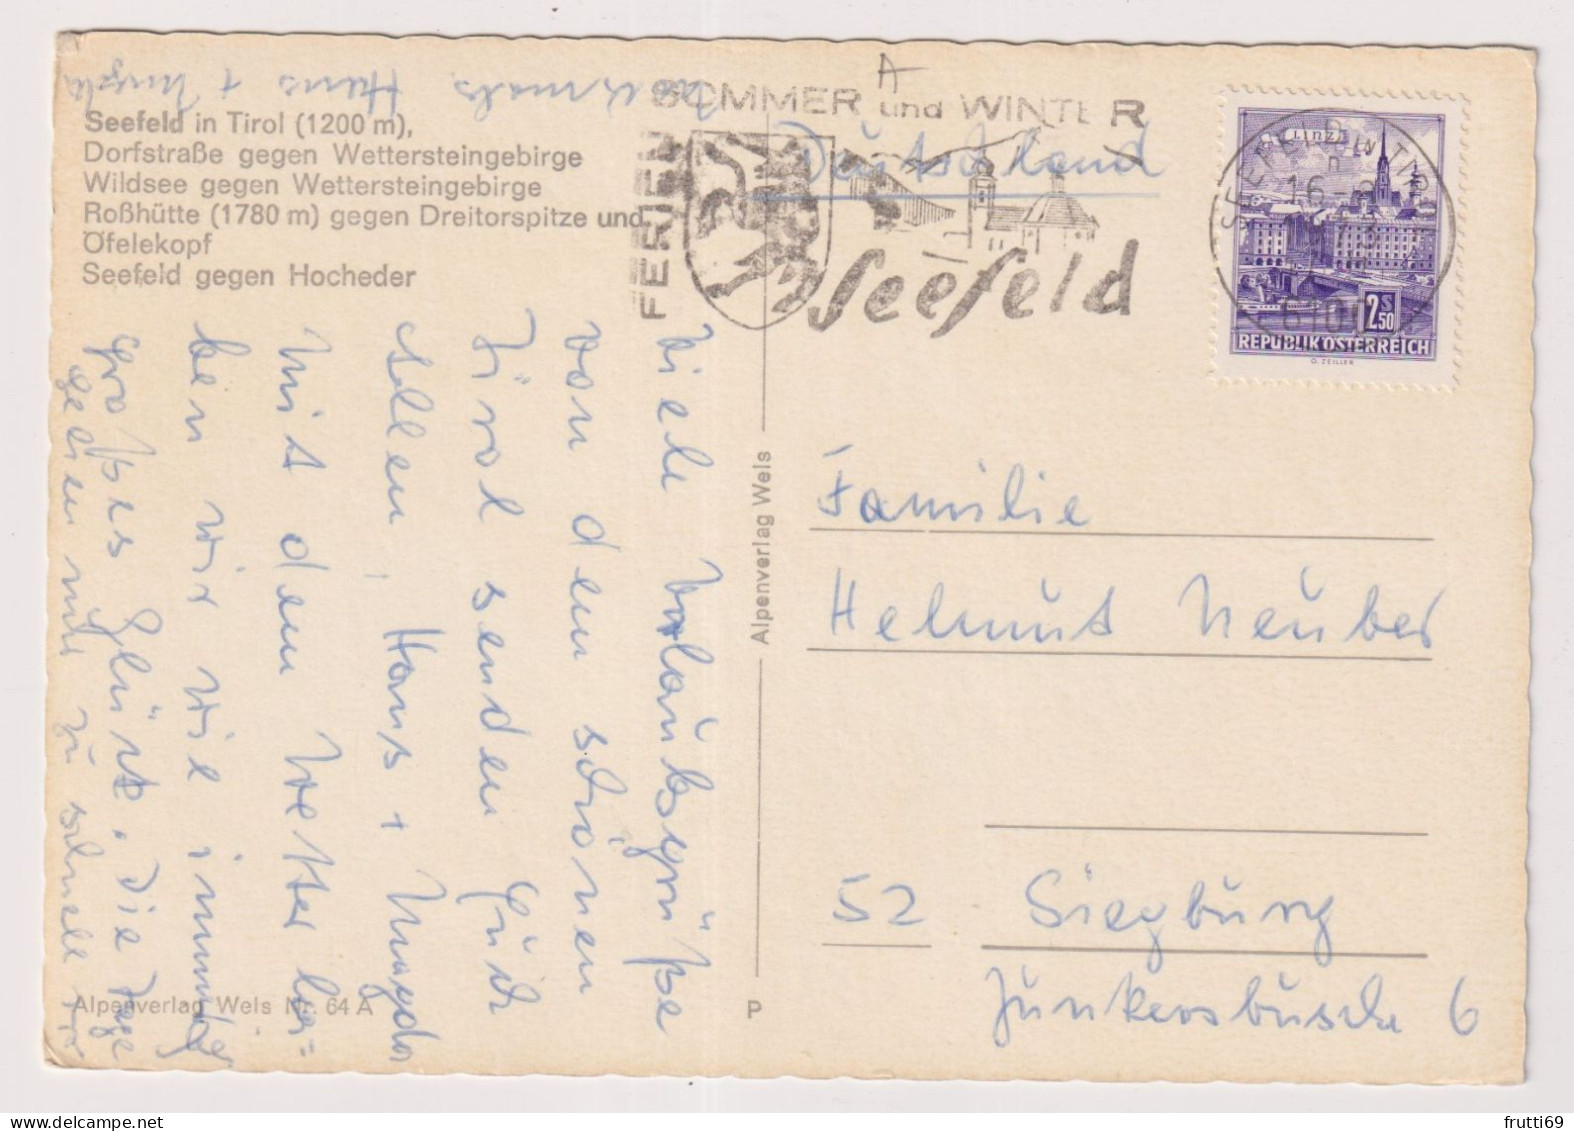 Seefeld in Tirol (1200 m),
Dorfstraße gegen Wettersteingebirge
Wildsee gegen Wettersteingebirge
Roßhütte (1780 m) gegen Dreitorspitze und
Öfelekopf
Seefeld gegen Hocheder
SOMMER und WINTER
FERIEN
Seefeld
A
Deutschland
LINZ
SEEFELD IN TIROL
16-
6100
2 S 50
REPUBLIK ÖSTERREICH
O. ZEILLER
Viele Urlaubsgrüße
von dem schönen
Tirol senden Euch
allen, Hans + Magda
Mit dem Wetter ha=
ben wir wie immer
großes Glück. Die Tage
gehen nur zu schnell
Hans + Magda
Alpenverlag Wels
Alpenverlag Wels Nr. 64 A
P
Familie
Helmut Neuber
52 Siegburg
Junkersbusch 6
frutti69